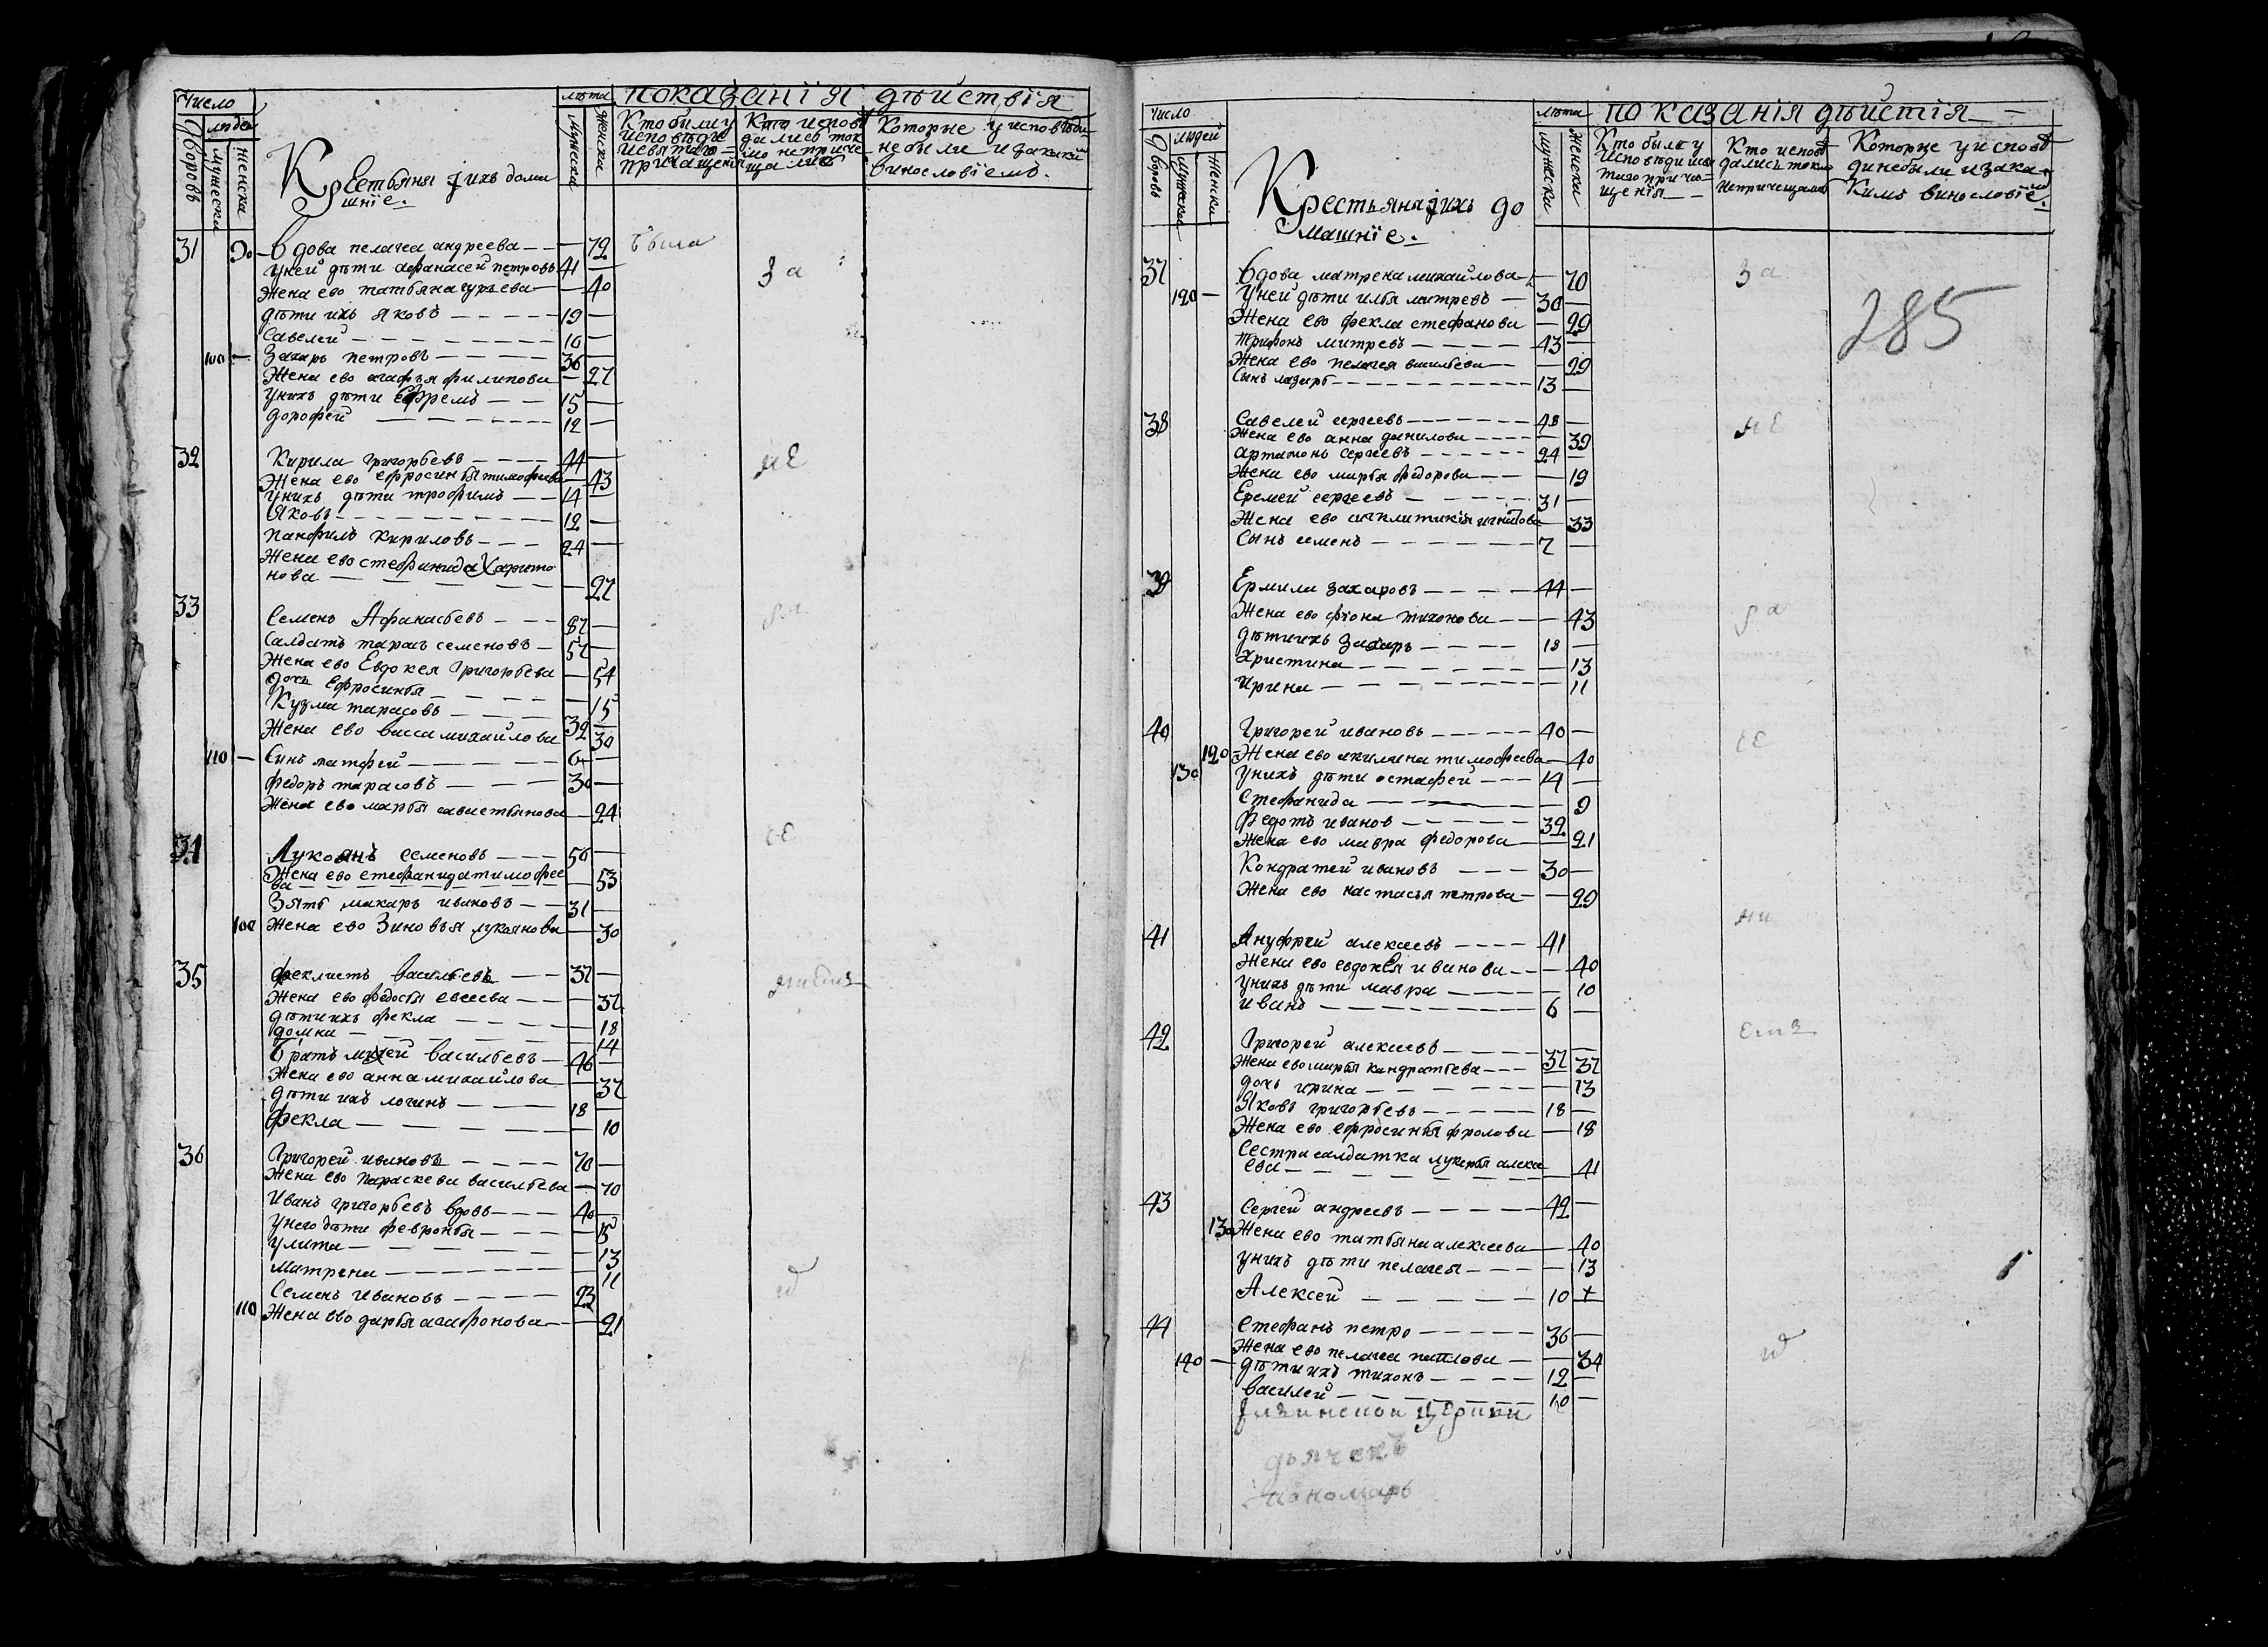 Число
лѣта
показанїя дѣиствїя
дворовъ
людеи
мужеска
женска
Крестьяня ӡихъ дома
шнїе.
мужески
женски
Кто были у
исповѣди
исвятаго
причащенїя
Кто испове
дались ток
мо неприче
щались
Которие у исповѣди
небыли изакимъ
винословїемъ.
31 90 — вдова пелагея андреева — 72 была
унеи дѣти афанасеи петровъ 41 — за
жена ево татьяна гурьева — 40
дѣти ихъ яковъ — 19 —
Савелеи — 10 —
100 — Захаръ петровъ — 36 —
Жена ево агафья филипова — 27
унихъ дѣти Ефремъ — 15 —
дорофеи — 12 —
32 Кирила григорьевъ — 44 — не
Жена ево ефросинья тимофеева — 43
унихъ дѣти трофимъ — 14 —
Яковъ — 12 —
панфилъ кириловъ — 24 —
Жена ево стефанида Харито
нова — 27
33 Семенъ Афанасьевъ — 87 —
Салдатъ тарасъ семеновъ — 57 —
Жена ево Евдокея Григорьева — 54
дочь Ефросинья — 15
Кузма тарасовъ — 32 —
Жена ево васса михаилова 30
110 — Синъ матфеи — 6 —
федоръ тарасовъ — 30 —
Жена ево марья савастьянова — 24
34 Лукоянъ семеновъ — 56 — се
Жена ево стефанида тимофее
ва — 53
Зять макаръ ивановъ — 31 —
100 Жена ево Зиновья лукоянова — 30
35 феклистъ васильевъ — 37 —
Жена ево федосья евсеева — 37
дѣти ихъ фекла — 18
домна — 14
братъ михеи васильевъ — 46 —
Жена ево анна михаилова — 37
дѣти ихъ логинъ — 18 —
фекла — 10
36 Григореи ивановъ — 70 —
Жена ево параскева васильева — 70
Иванъ григорьевъ вдовъ — 40 —
унего дѣти февронья — 15
улита — 13
Матрена — 11
Семенъ ивановъ — 23 —
110 Жена ево дарья агафонова — 21
Число
лѣта
показанїя дѣистїя
дворовъ
людеи
мужеска
женски
Крестьяня ӡихъ до
машнїе.
мужески
женски
Кто были у
исповѣди исвя
таго прича
щенїя
Кто испове
дались токмо
непричещались
Которие у испове
ди небыли изака
кимъ винословїем
285
37 вдова матрена михаилова — 70 за
120 — унеи дѣти илья митревъ — 30 —
Жена ево фекла стефанова — 29
трифонъ митревъ — 43 —
Жена ево пелагея васильева — 29
Сынъ лазарь — 13 —
38 Савелеи сергеевъ — 48 — не
Жена ево анна данилова — 39
артамонъ сергеевъ — 24 —
Жена ево марья федорова — 19
Еремеи сергеевъ — 31 —
Жена ево игнатова — 33
Сынъ семенъ — 7 —
39 Ермила захаровъ — 44 —
Жена ево фиона тихонова — 43
дѣти ихъ Захаръ — 18 —
христина — 13
ирина — 11
40 Григореи ивановъ — 40 — се
120 Жена ево акилина тимофеева — 40
130 унихъ дѣти остафеи — 14 —
Стефанида — 9
Федотъ иванов — 32 —
Жена ево мавра федорова — 21
Кондратеи ивановъ — 30 —
Жена ево настасья петрова — 29
41 Ануфреи алексеевъ — 41 ни
Жена ево евдокея иванова — 40
унихъ дѣти мавра — 10
иванъ — 6 —
42 Григореи алексеевъ — 37 —
Жена ево марья кандратьева — 37
дочь ирина — 13
Яковъ григорьевъ — 18 —
Жена ево ефросинья фролова — 18
Сестра салдатка лукерья алексе
ева — 41
43 Сергеи андреевъ — 42 —
130 Жена ево татьяна алексеева — 40
унихъ дѣти пелагея — 13
Алексеи — 10 +
44 Стефанъ петро — 36 —
Жена ево пелагея павлова — 34
140 — дѣти ихъ тихонъ — 12 —
василеи — 10 —
церкви
дьячекъ
пономарь